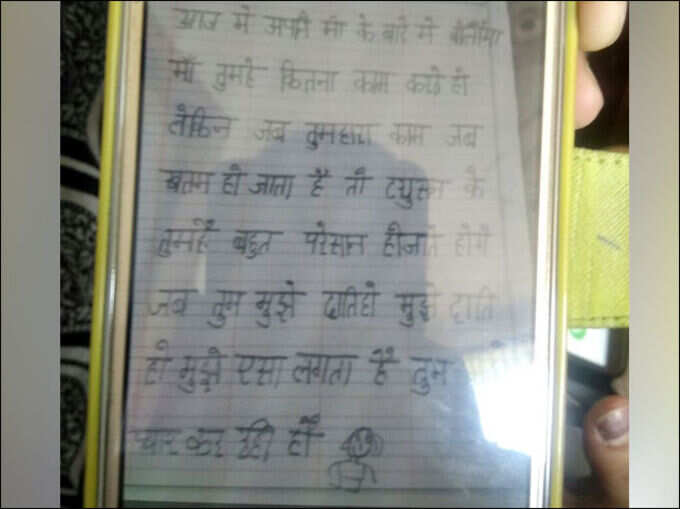 आज मे अपने मां के बारे मे
माँ तुमहे कितना काम करते हो
लेकिन जब तुमहारा काम जब
खतम हो जाता है तो टयुसन के
तुमहें बहुत परेसान होजाते होगे
जब तुम मुझे दातिहो मुझे दाति
हो मुझे एसा लगता है तुम
प्यार कर रही हों